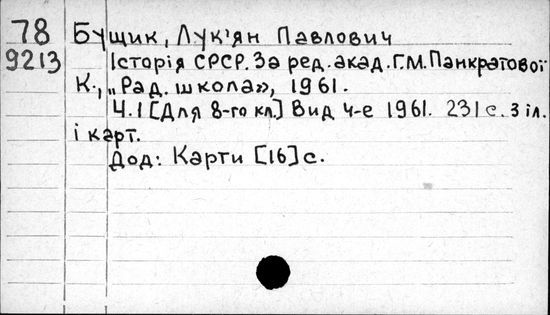 78 Бущик, Лук'ян Павлович
9213 Історія СРСР. За ред. акад. Г.М. Панкратової
К., „Рад. школа», 1961.
Ч.1 [Для 8-го кл.] Вид 4-е 1961. 231 с. з іл.
і карт.
Дод: Карти [16] с.